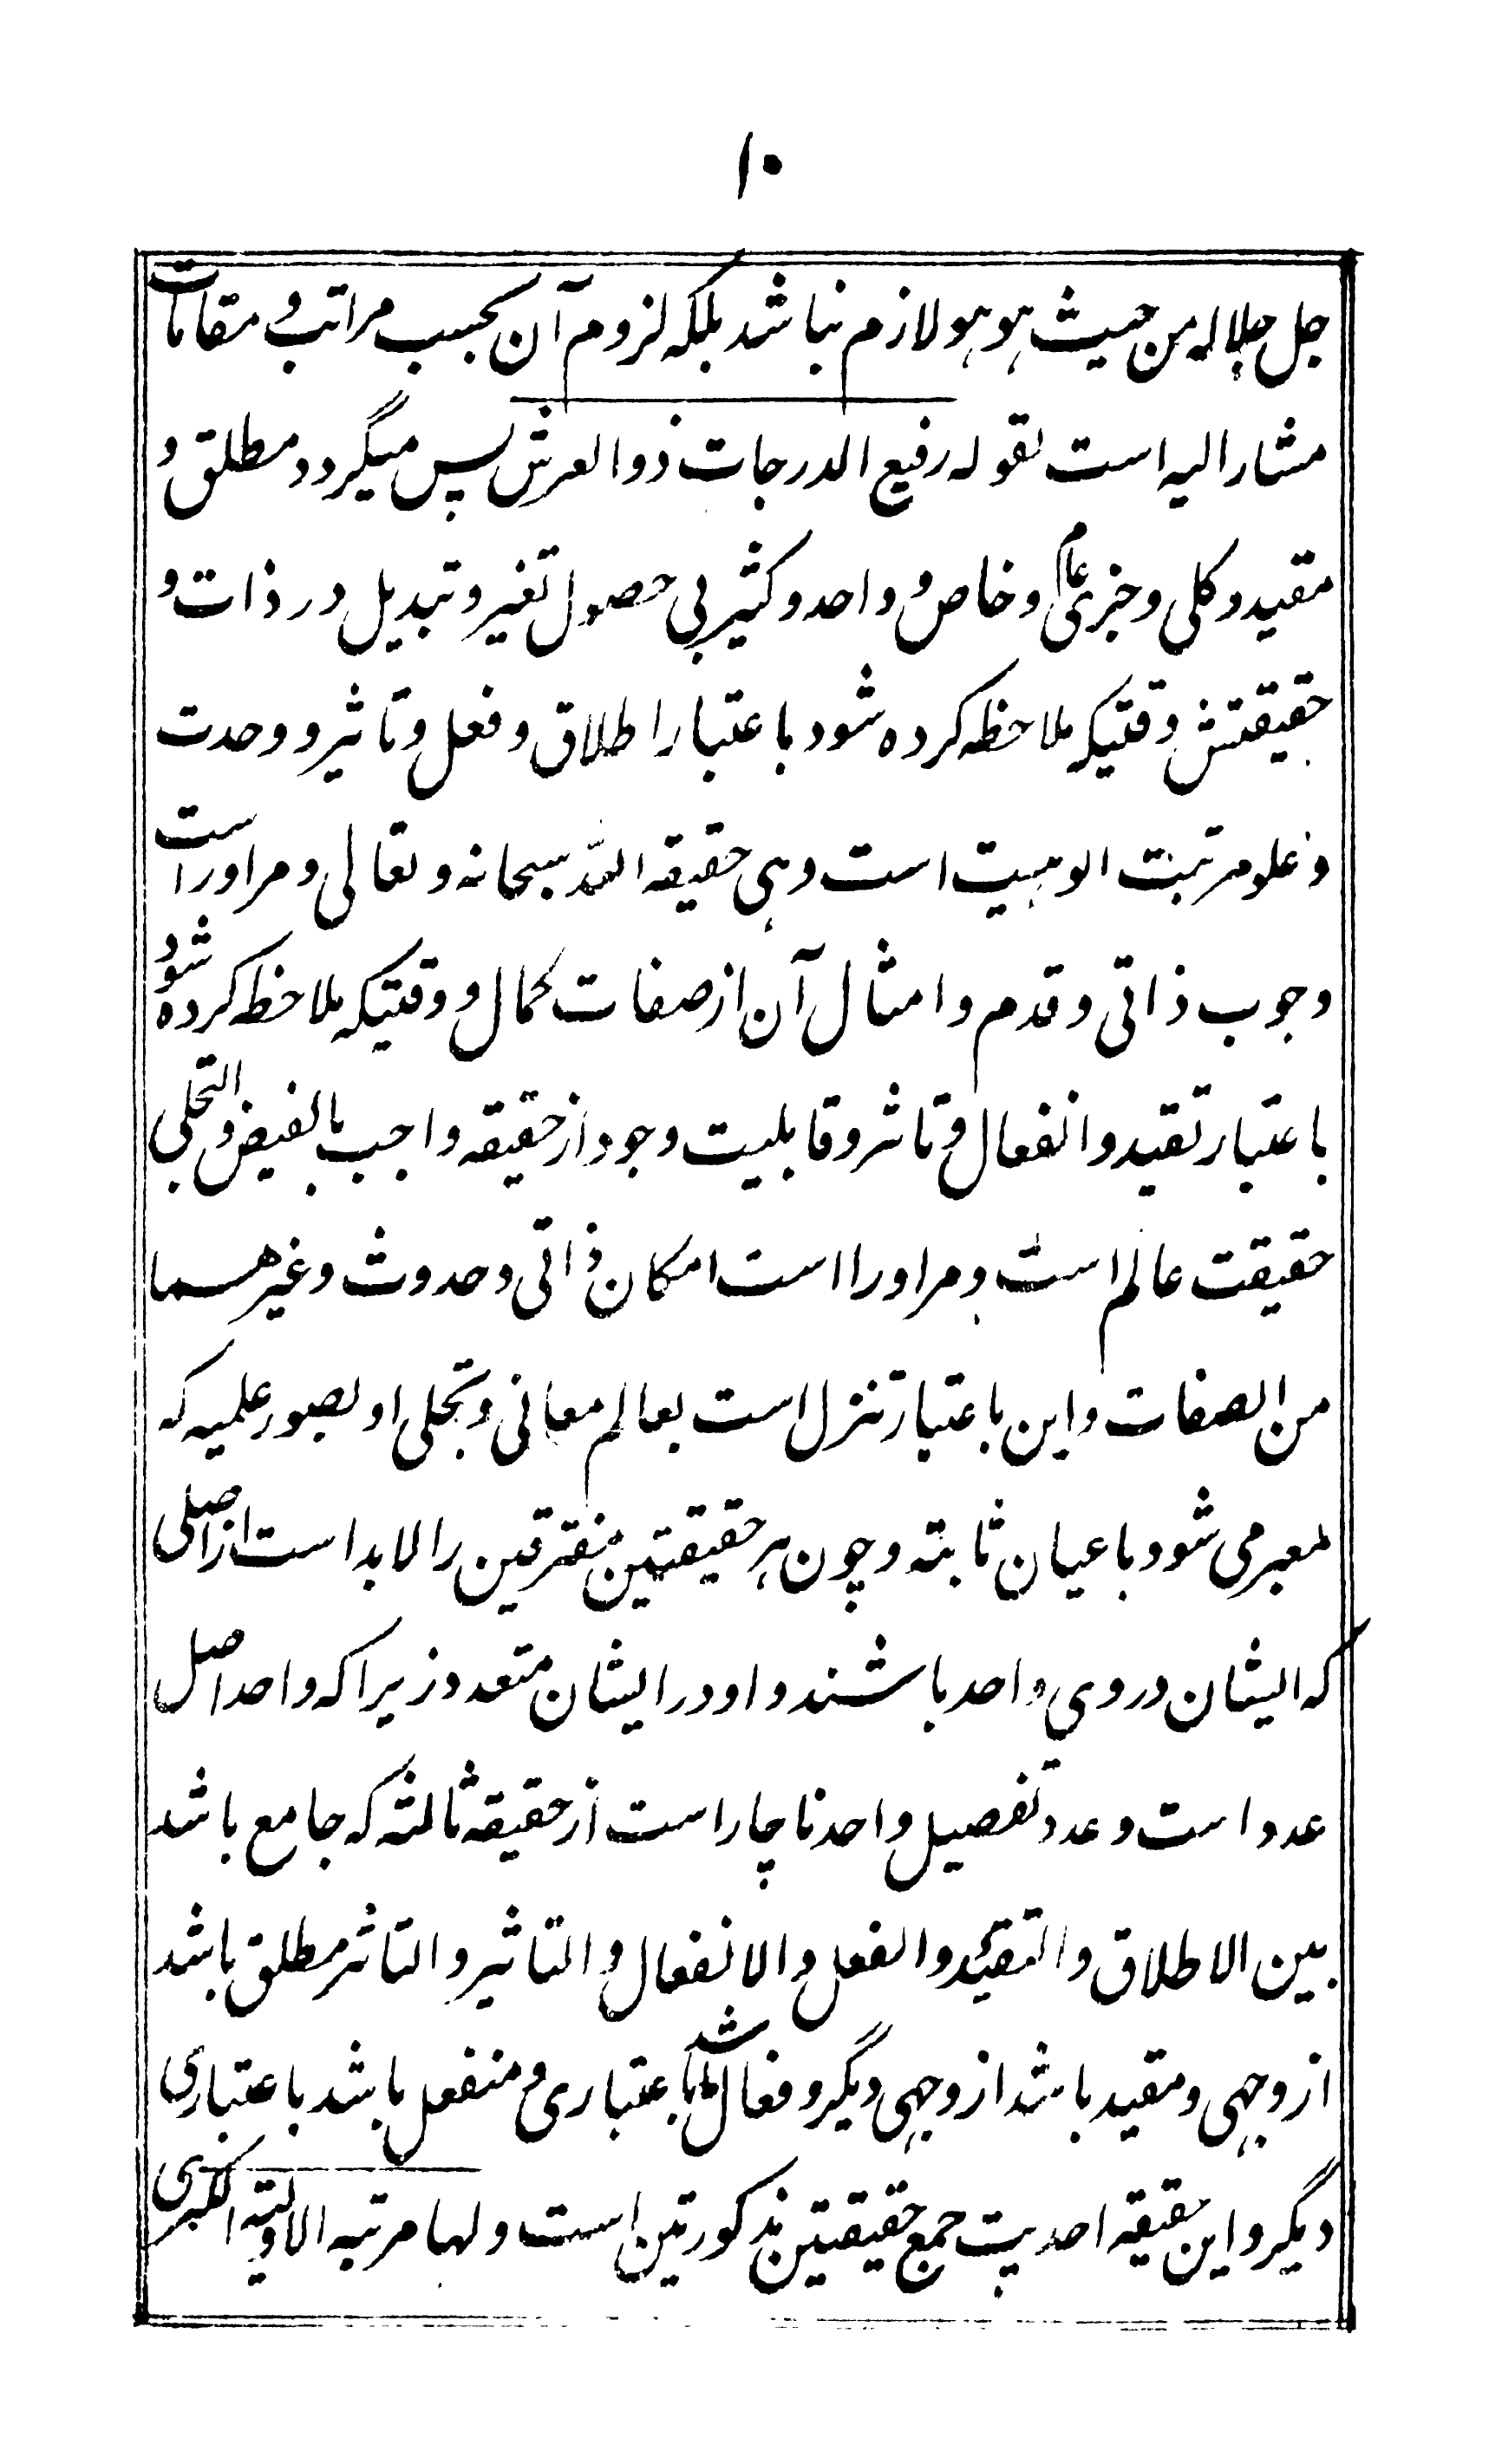 ۱۰
جل جلاله من حیث هو هو لازم نباشد بلکه لزوم آن بحسب مراتب و مقامات
مشار الیه است بقوله رفیع الدرجات ذو العرش پس میگردد مطلق و
مقید و کلی و جزئی عام و خاص و واحد و کثیر بی حصول تغیر و تبدیل در ذات و
حقیقتش وقتیکه ملاحظه کرده شود باعتبار اطلاق و فعل و تاثیر و وحدت
و علو مرتبت الوهیت است وهی حقیقه الله سبحانه و تعالی و مر او راست
وجوب ذاتی و قدم و امثال آن از صفات کمال و وقتیکه ملاحظه کرده شود
باعتبار تقید و انفعال و تاثر و قابلیت وجود از حقیقه واجب بالفیض و التجلی
حقیقت عالم است و مر او را است امکان ذاتی و حدوث و غیرهما
من الصفات و این باعتبار تنزل است بعالم معانی و تجلی او بصور علمیه که
معبر می شود باعیان ثابته و چون هر حقیقتین مفترقین را لابد است از اصلی
که ایشان در وی واحد باشند و او در ایشان متعدد زیرا که واحد اصل
عدد است و عدد تفصیل واحد ناچار است از حقیقه ثالثه که جامع باشد
بین الاطلاق و التقیّد و الفعل و الانفعال و التاثیر و التاثر مطلق باشد
از وجهی و مقید باشد از وجهی دیگر و فعال باشد باعتباری و منفعل باشد باعتباری
دیگر و این حقیقه احدیت جمع حقیقتین مذکورتین است و لها مرتبه الاولیّه الکبری